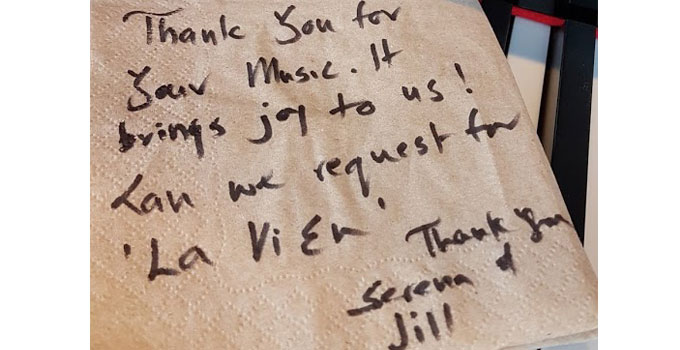 Thank you for
your Music. It
brings joy to us!
Can we request for
'La Vi En'
Thank you
Serena &
Jill